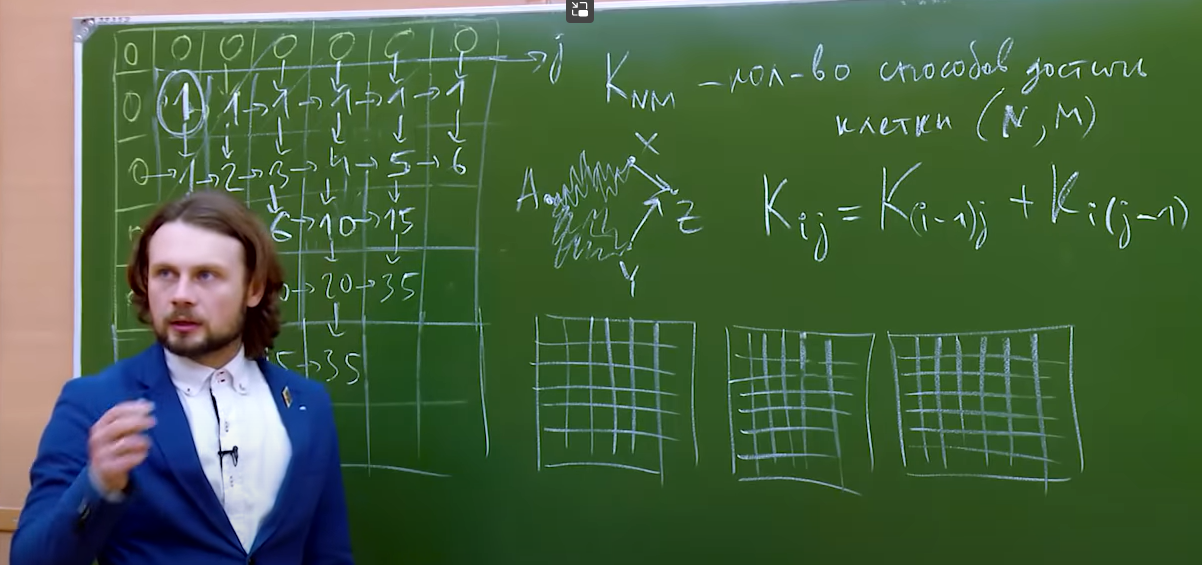 0 0 0 0 0 0 0 → j
0 1 → 1 → 1 → 1 → 1 → 1
0 → 1 → 2 → 3 → 4 → 5 → 6
6 → 10 → 15
→ 20 → 35
→ 35
K_{NM} – кол-во способов достичь
клетки (N, M)
X
A
Z
Y
K_{ij} = K_{(i-1)j} + K_{i(j-1)}